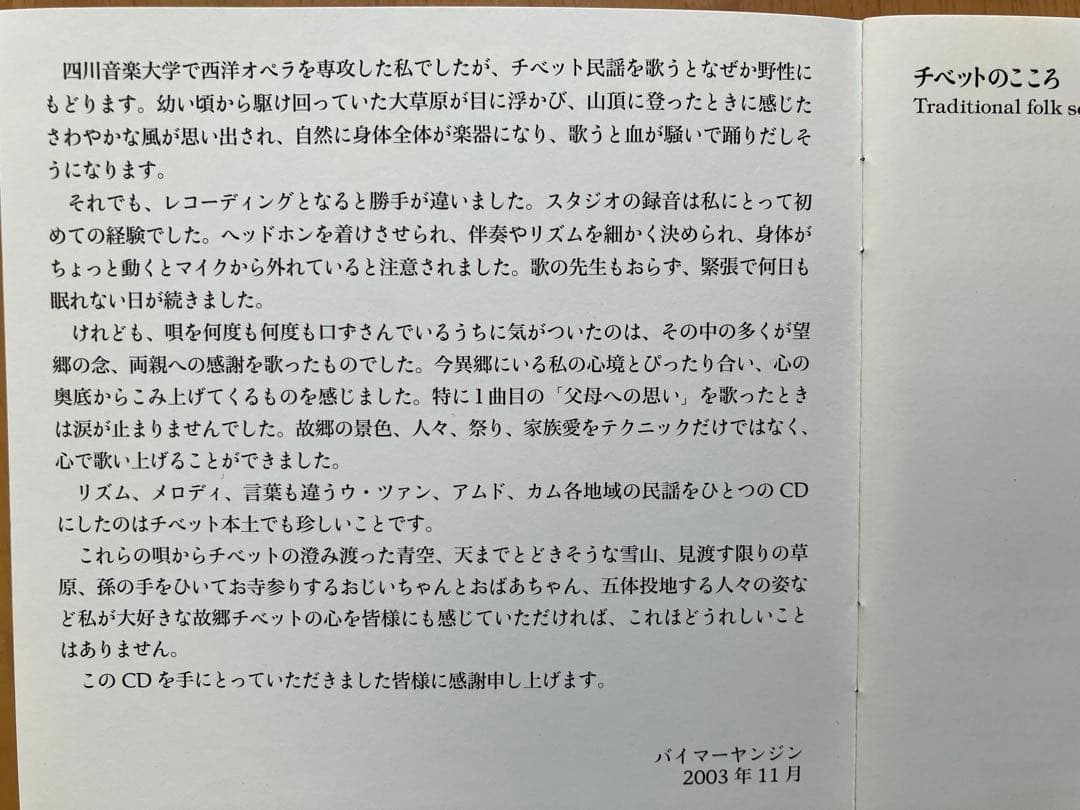 四川音楽大学で西洋オペラを専攻した私でしたが、チベット民謡を歌うとなぜか野性に
もどります。幼い頃から駆け回っていた大草原が目に浮かび、山頂に登ったときに感じた
さわやかな風が思い出され、自然に身体全体が楽器になり、歌うと血が騒いで踊りだしそ
うになります。
それでも、レコーディングとなると勝手が違いました。スタジオの録音は私にとって初
めての経験でした。ヘッドホンを着けさせられ、伴奏やリズムを細かく決められ、身体が
ちょっと動くとマイクから外れていると注意されました。歌の先生もおらず、緊張で何日も
眠れない日が続きました。
けれども、唄を何度も何度も口ずさんでいるうちに気がついたのは、その中の多くが望
郷の念、両親への感謝を歌ったものでした。今異郷にいる私の心境とぴったり合い、心の
奥底からこみ上げてくるものを感じました。特に1曲目の「父母への思い」を歌ったとき
は涙が止まりませんでした。故郷の景色、人々、祭り、家族愛をテクニックだけではなく、
心で歌い上げることができました。
リズム、メロディ、言葉も違うウ・ツァン、アムド、カム各地域の民謡をひとつのCD
にしたのはチベット本土でも珍しいことです。
これらの唄からチベットの澄み渡った青空、天までとどきそうな雪山、見渡す限りの草
原、孫の手をひいてお寺参りするおじいちゃんとおばあちゃん、五体投地する人々の姿な
ど私が大好きな故郷チベットの心を皆様にも感じていただければ、これほどうれしいこと
はありません。
このCDを手にとっていただきました皆様に感謝申し上げます。
バイマーヤンジン
2003年11月
チベットのこころ
Traditional folk